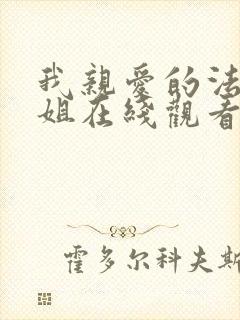 我親愛的法
姐在綫觀看
霍多尔科夫斯